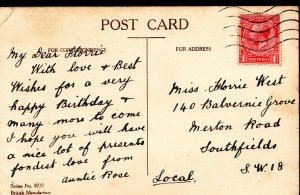 POST CARD
FOR CORRESPONDENCE
FOR ADDRESS
My Dear Florrie
With love & Best
Wishes for a very
happy Birthday &
many more to come
I hope you will have
a nice lot of presents
fondest love from
auntie Rose
Series No. 875
British Manufacture
ONE PENNY
Miss Florrie West
140 Balvernie Grove
Merton Road
Southfields
S.W.18
Local.